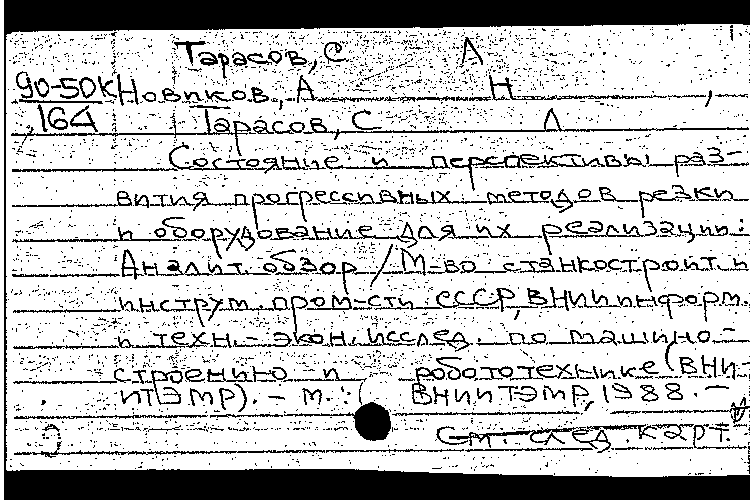 Тарасов, С А
90-50К Новиков, А Н,
164 Тарасов, С А
Состояние и перспективы раз-
вития прогрессивных методов резки
и оборудование для их реализации:
Аналит. обзор / М-во станкостроит. и
инструм. пром-сти СССР, ВНИИ информ.
и техн.-экон. исслед. по машино-
строению и робототехнике (ВНИ-
ИТЭМР). - М.: ВНИИТЭМР, 1988. -
См. след. карт.